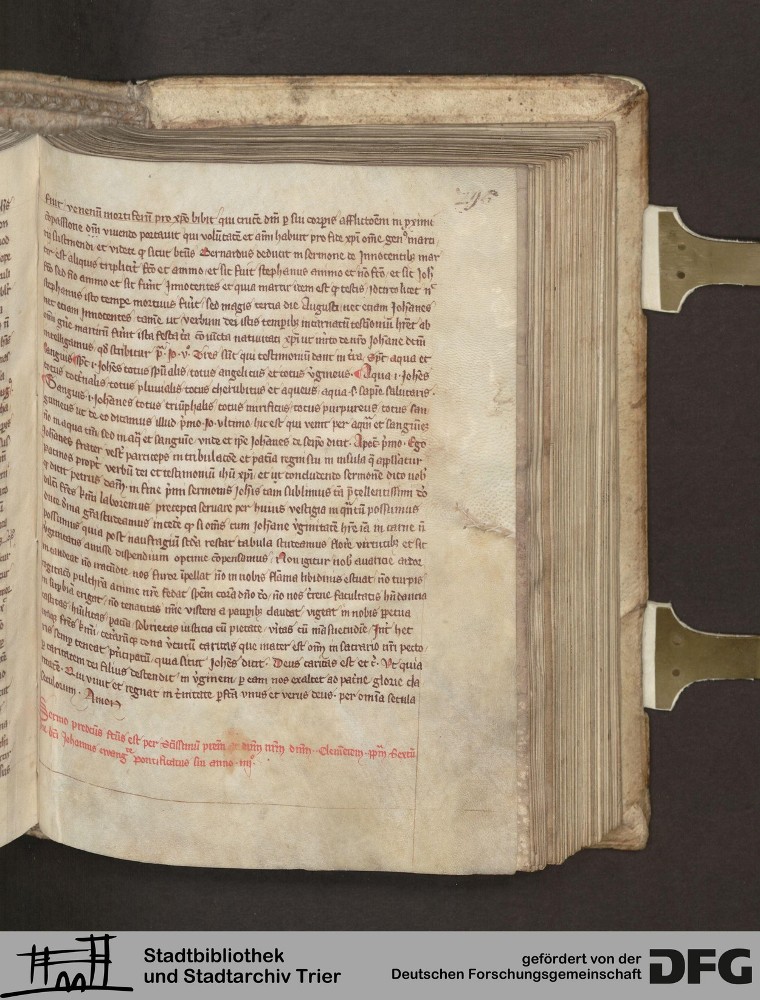 fuit venenū mortiferū pro xpō bibit qui crucē dn̄i ꝑ sui corpis afflictōem
ꝯpassione dn̄i vivendo portavit qui volūtatē et aīm habuit pro fide xpi om̄e genꝰ marti
rij sustinendi et videte ꝙ sicut btūs Bernardus deducit in sermone de Innocentibꝫ mar
tir est aliquis triplicit fc̄o et animo et sic fuit stephanus animo et nō fc̄o et sic Joh
fc̄o sed nō animo et sic fūnt Innocentes et qua martir idem est ꝙ testis
stephanus isto tempe mortuus fuit sed magis tercia die Augusti nec etiam Johānes
nec etiam Innocentes tamē ut verbum dei istas templis incarnatū testimoniū hrēt ab
om̄i gn̄e martirū fūnt ista festa iuncta nativitati xpi ut mito de nrō Johāne dem
intelligamus qd scribitur pͣ Jo vͦ Tres sūt qui testimoniū dant in tr̄a Spc̄ aqua et
sanguis Spc̄ i Johēs totus spūalis totus angelicus et totus v̄gineus Aqua i Johēs
totus doctrīalis totus pluvialis totus cherubitus et aqueus aqua s sapīe salutaris
Sanguis i Johanes totus triūphalis totus mirificus totus purpureus totus san
guineus ut de eo dicamus illud pͥmo Jo vltimo hic est qui venit per aquā et sanguinē
nō in aqua tm̄ sed in aq̄ et sanguīe vnde et ipe Johānes de seipo dicit Apoc pͥmo Ego
Johānes frater vest̄ particeps in tribulacōe et pacīa regni fui in insula q̄ appllatur
patmos propt̄ verbū dei et testimoniū ihū xpi et ut concludendo sermonē dico vob
ꝙ dicit petrus dam̄ in fine pͥmi sermonis Johīs tam sublimus tā p̄cellentissim
dilcī fr̄es kr̄mi laboremus precepta servare per huius vestigia in qͣntū possumus
duce dīna grā studeamus incedē ꝙ si om̄s cum Johāne v̄ginitatē hrē iā in carne nō
possumus quia post naufragiū scd̄a restat tabula studeamus florē virtutibꝫ et sic
v̄ginitatis amisse dispendium optime cōpensamus Non igitur nob avaricie ardor
incandeat nō iracūdie nos furor īpellat nō in nobis flāma libidinis estuat nō turpis
cogitacō pulchrā anime nr̄e fedat spēm corā dn̄o dō nō nos trene facultatis hūdancia
in supbiā erigat nō tenacitas mīe viscera a paupibꝫ claudat vigeat in nobis ppetua
castitas hūilitas pacīa sobrietas iusticia cū pietate vītas cū māsuetudīe Int̄ hec
itaqꝫ fr̄es kr̄mi cetaꝝqꝫ dona v̄tutū caritas que mater est oīm in sacrario nr̄i pecto
ris semp teneat pͥncipatū quia sicut Johēs dicit Deus caritas est et c̄ Vt quia
ꝑ caritatem dei filius descendit in v̄ginem ꝑ eam nos exaltet ad patne glorie cla
ritatē Qui vivit et regnat in t̄nitate pfcā vnus et verus deus per om̄ia secula
seculorum Amen
Sermo predcūs fcūs est per scīssimū prēm dn̄m nr̄m dnm̄ Clemētem ppm̄ sextū
de scō Johannes ewangͭᵃ pontificatus sui anno iiijͦ
Stadtbibliothek
und Stadtarchiv Trier
gefördert von der
Deutschen Forschungsgemeinschaft
DFG